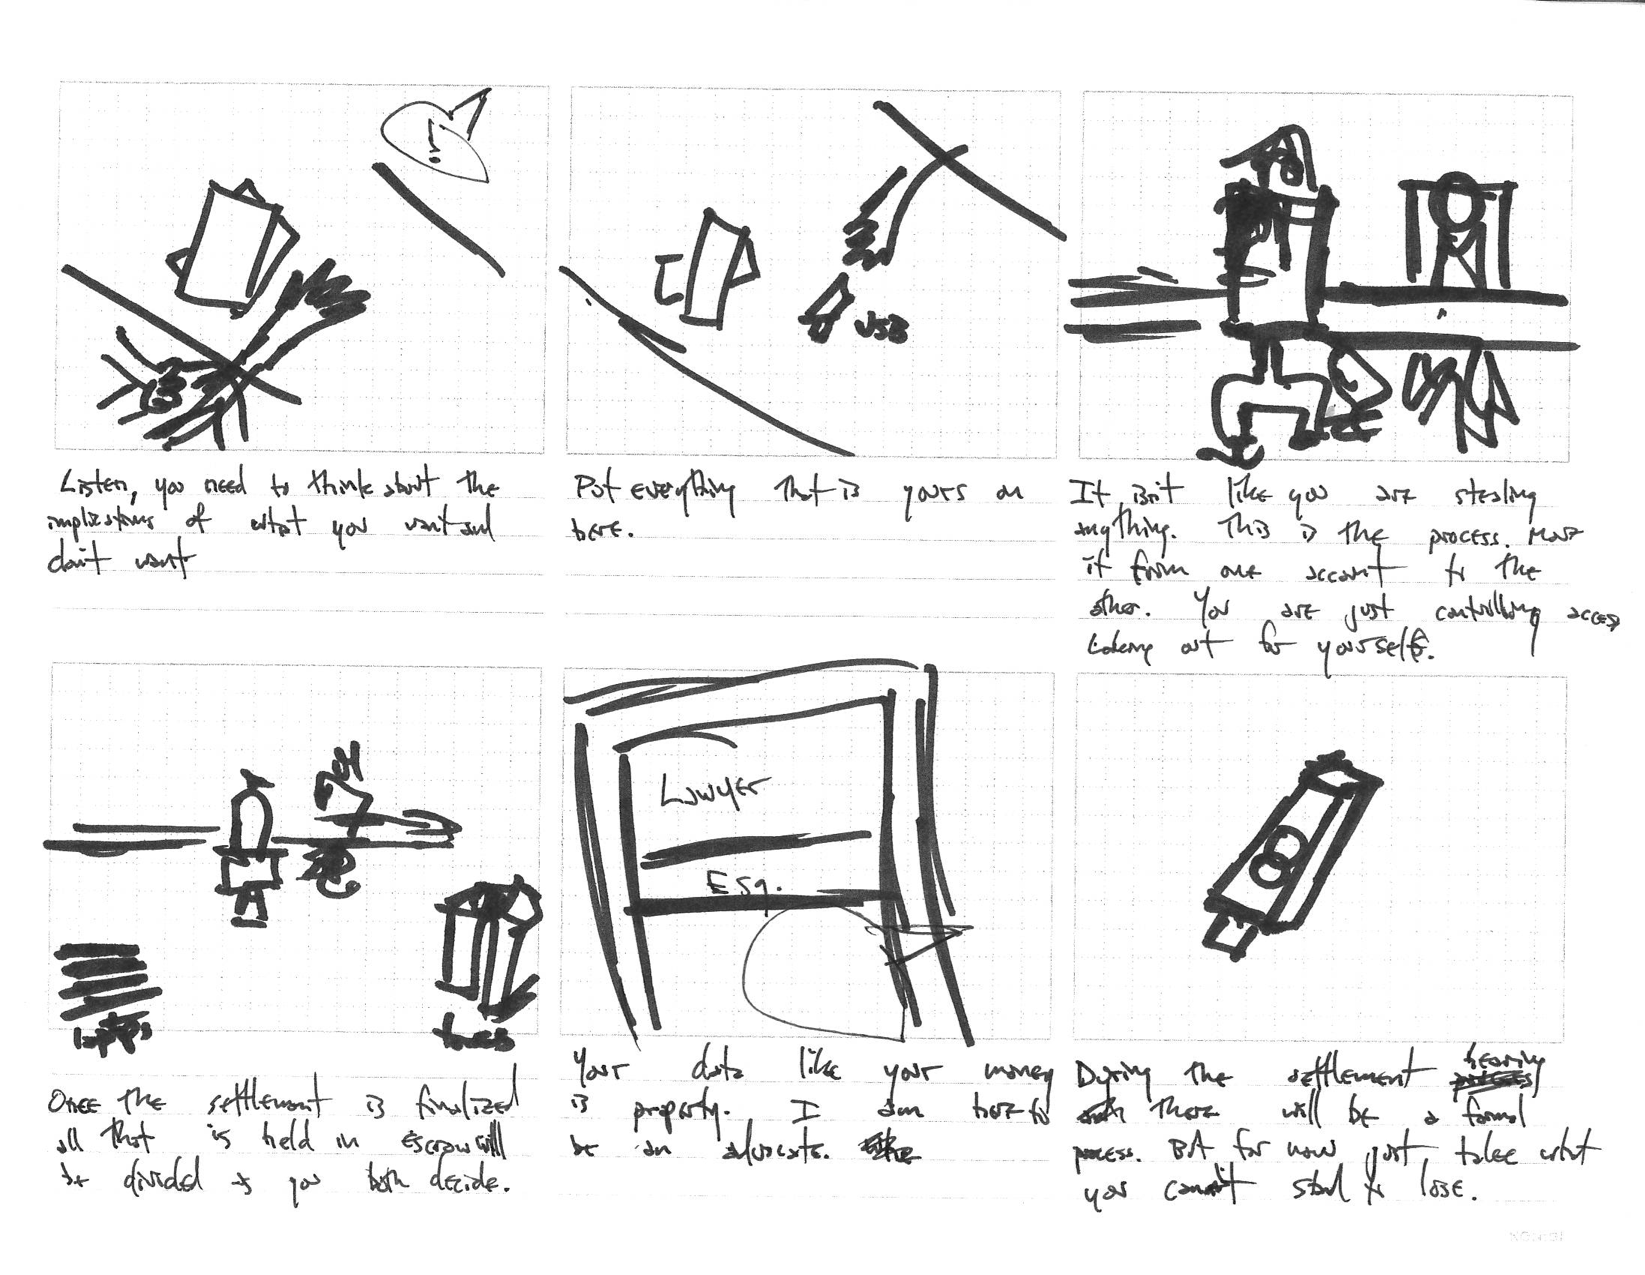 USB
Listen, you need to think about the
implications of what you want and
don't want
Put everything that is yours on
here.
It isn't like you are stealing
anything. This is the process. Move
it from one account to the
other. You are just controlling access
taking out for yourself.
Lawyer
Esq.
Once the settlement is finalized
all that is held in escrow will
be divided as you both decide.
Your data like your money
is property. I am here to
be an advocate.
During the settlement hearing
there will be a formal
process. But for now just take what
you cannot stand to lose.